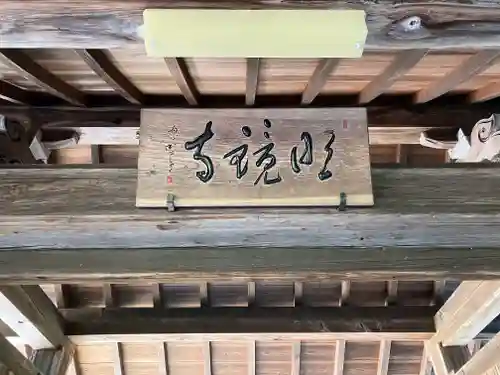 明鏡寺